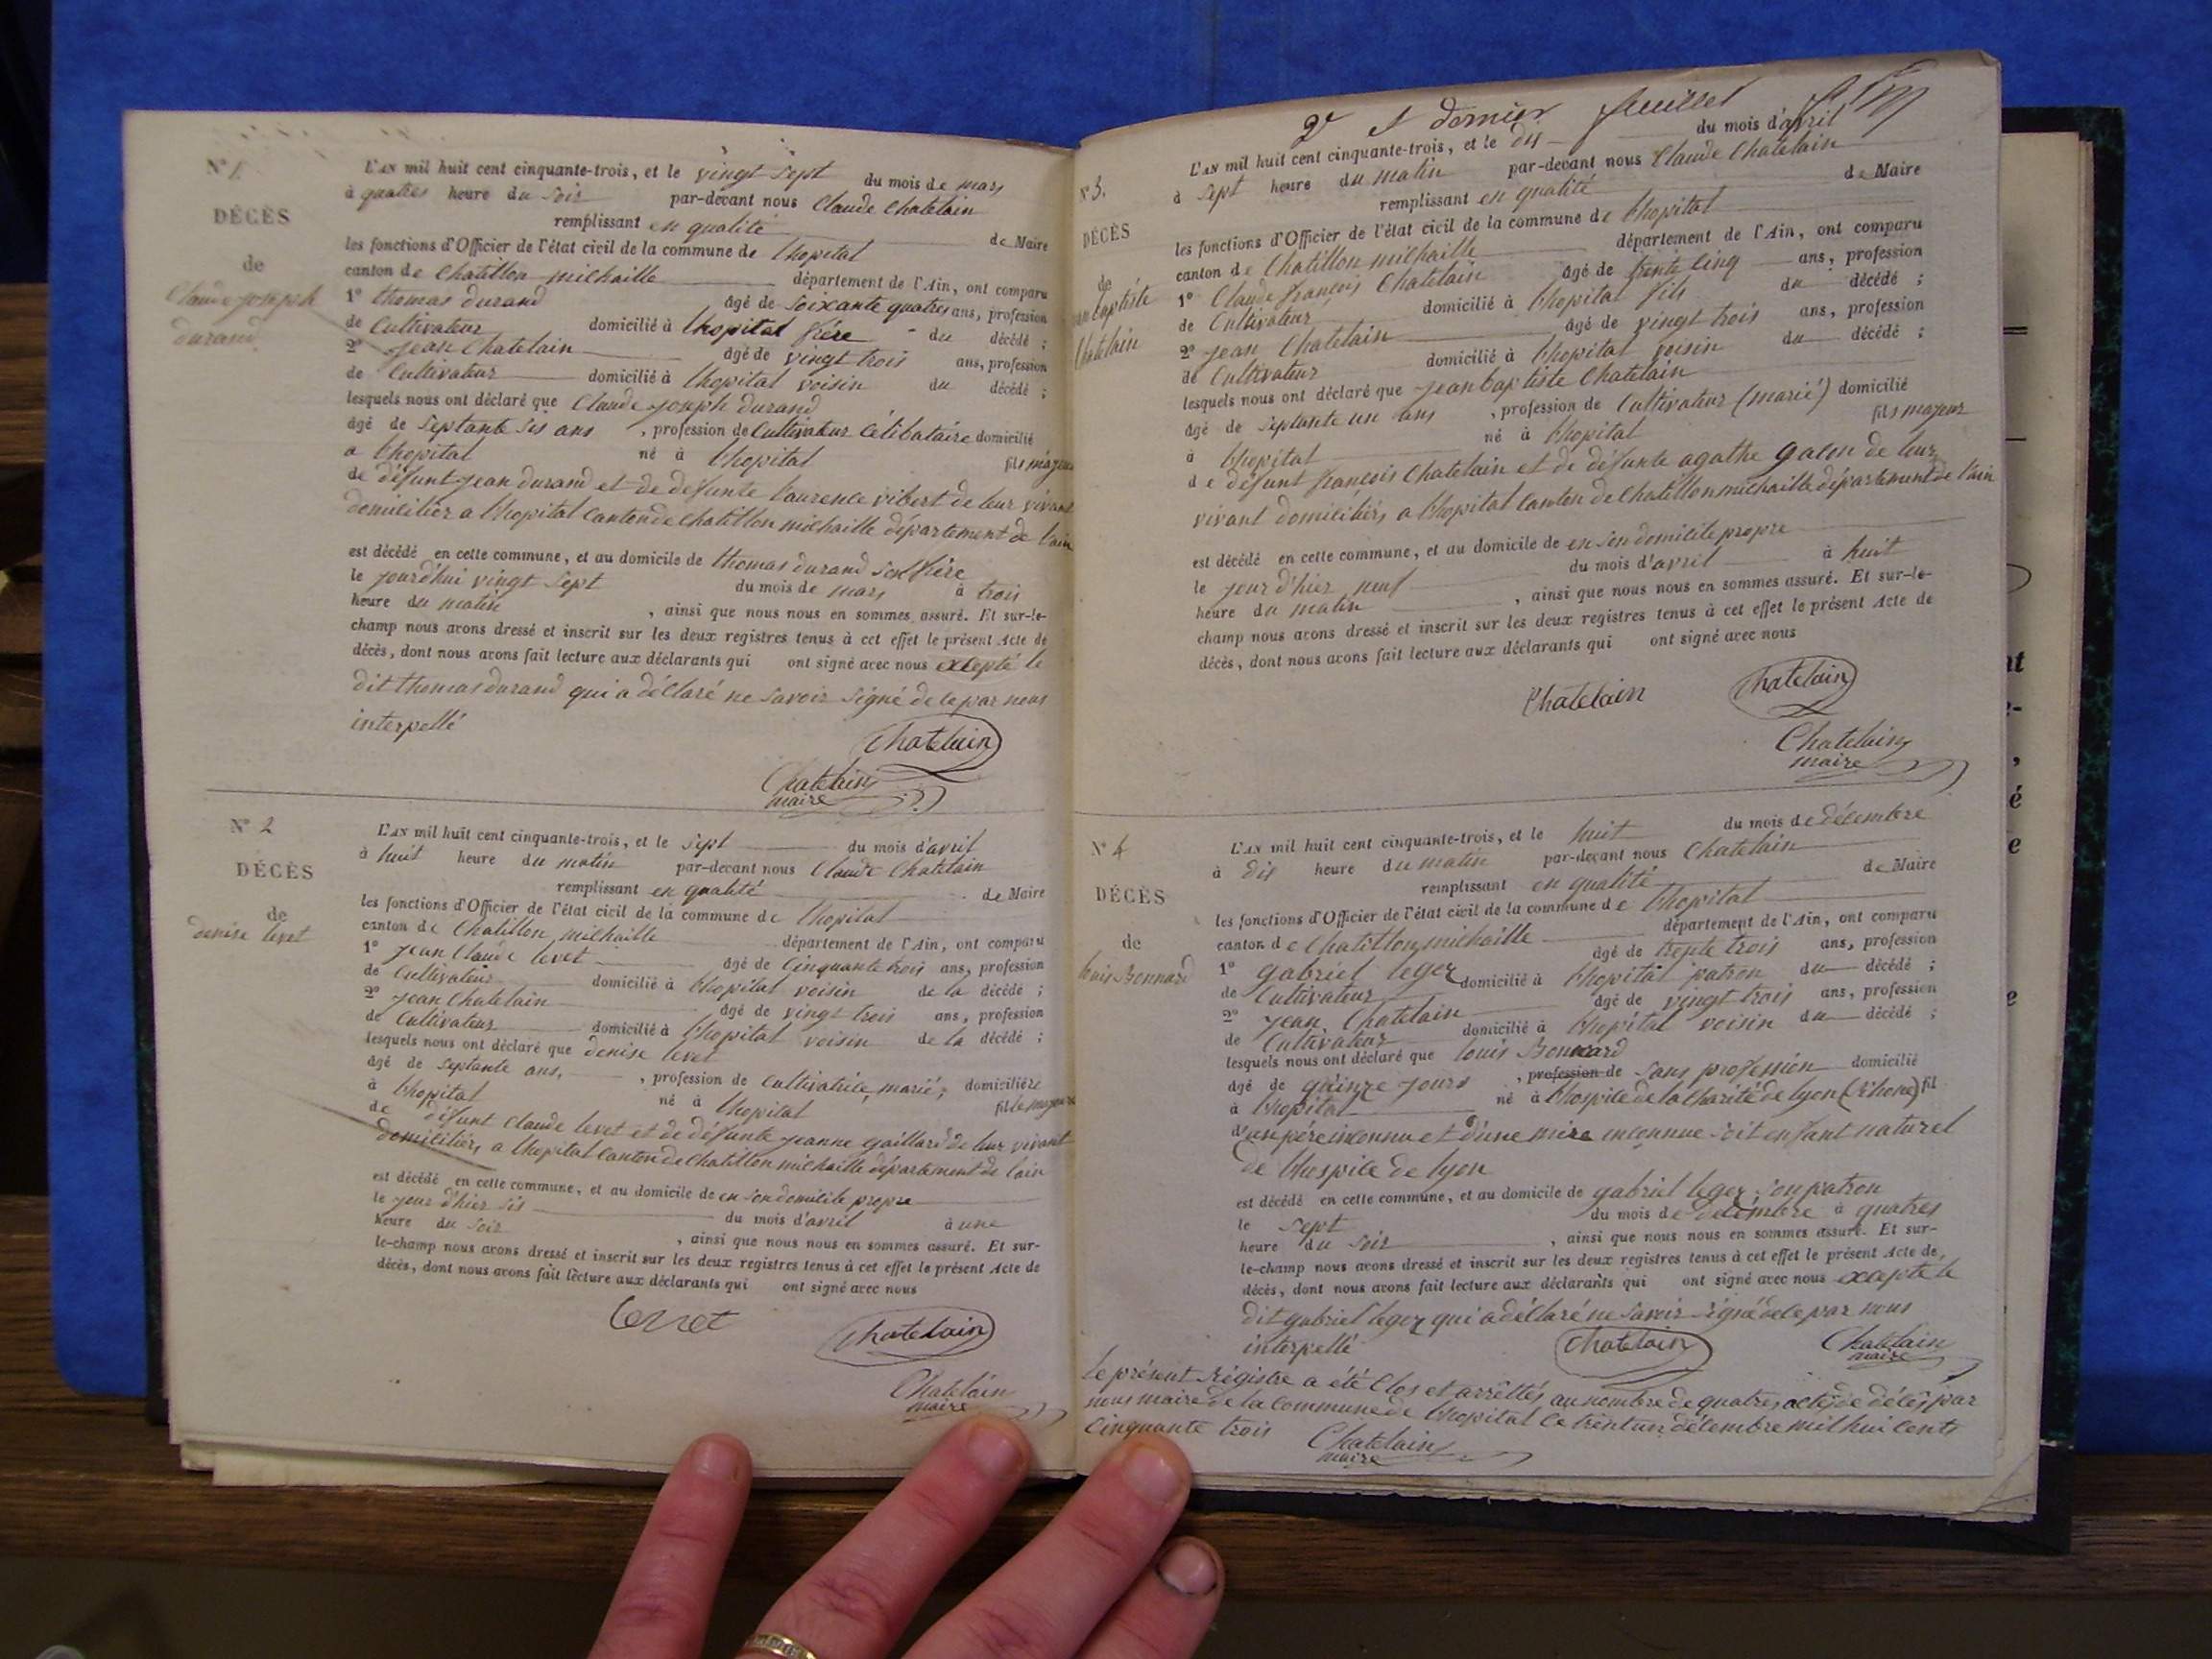 N° 1
DÉCÈS
de
Claude joseph
durand
L'AN mil huit cent cinquante-trois, et le vingt sept du mois de mars
à quatres heure du soir par-devant nous Claude Chatelain
remplissant en qualité de Maire
les fonctions d'Officier de l'état civil de la commune de lhopital
canton de Chatillon michaille département de l'Ain, ont comparu
1° thomas durand âgé de soixante quatres ans, profession
de Cultivateur domicilié à lhopital frére du décédé ;
2° jean Chatelain âgé de vingt trois ans, profession
de Cultivateur domicilié à lhopital voisin du décédé ;
lesquels nous ont déclaré que Claude joseph durand
âgé de septante sis ans , profession de Cultivateur Célibataire domicilié
a lhopital né à lhopital fils majeur
de défunt jean durand et de defunte laurence vibert de leur vivant
domiciliér a lhopital Canton de Chatillon michaille département de lain
est décédé en cette commune, et au domicile de thomas durand son frére
le jourd'hui vingt sept du mois de mars à trois
heure du matin , ainsi que nous nous en sommes assuré. Et sur-le-
champ nous avons dressé et inscrit sur les deux registres tenus à cet effet le présent Acte de
décès, dont nous avons fait lecture aux déclarants qui ont signé avec nous excepté le
dit thomas durand qui a déclaré ne savoir signé de ce par nous
interpellé
Chatelain
Chatelain
maire
N° 2
DÉCÈS
de
denise levet
L'AN mil huit cent cinquante-trois, et le sept du mois d'avril
à huit heure du matin par-devant nous Claude Chatelain
remplissant en qualité de Maire
les fonctions d'Officier de l'état civil de la commune de lhopital
canton de Chatillon michaille département de l'Ain, ont comparu
1° jean Claude levet âgé de Cinquante trois ans, profession
de Cultivateur domicilié à lhopital voisin de la décédé ;
2° jean Chatelain âgé de vingt trois ans, profession
de Cultivateur domicilié à lhopital voisin de la décédé ;
lesquels nous ont déclaré que denise levet
âgé de septante ans, , profession de Cultivatrice, marié, domiciliére
à lhopital né à lhopital fille majeure
de défunt Claude levet et de défunte jeanne gaillard de leur vivant
domiciliér, a lhopital Canton de Chatillon michaille département de lain
est décédé en cette commune, et au domicile de en son domicile propre
le jour d'hier sis du mois d'avril à une
heure du soir , ainsi que nous nous en sommes assuré. Et sur-
le-champ nous avons dressé et inscrit sur les deux registres tenus à cet effet le présent Acte de
décès, dont nous avons fait lecture aux déclarants qui ont signé avec nous
Chatelain
Chatelain
maire
2e et dernier feuillet
N° 3.
DÉCÈS
de
baptiste
Chatelain
L'AN mil huit cent cinquante-trois, et le dis du mois d'avril
à sept heure du matin par-devant nous Claude Chatelain
remplissant en qualité de Maire
les fonctions d'Officier de l'état civil de la commune de lhopital
canton de Chatillon michaille département de l'Ain, ont comparu
1° Claude françois Chatelain âgé de trente Cinq ans, profession
de Cultivateur domicilié à lhopital fils du décédé ;
2° jean Chatelain âgé de vingt trois ans, profession
de Cultivateur domicilié à lhopital voisin du décédé ;
lesquels nous ont déclaré que jean baptiste Chatelain
âgé de septante un ans , profession de Cultivateur (marié) domicilié
à lhopital né à lhopital fils majeur
de défunt françois Chatelain et de défunte agathe de leur
vivant domiciliér, a lhopital Canton de Chatillon michaille département de l'ain
est décédé en cette commune, et au domicile de en son domicile propre
le jour d'hier neuf du mois d'avril à huit
heure du matin , ainsi que nous nous en sommes assuré. Et sur-le-
champ nous avons dressé et inscrit sur les deux registres tenus à cet effet le présent Acte de
décès, dont nous avons fait lecture aux déclarants qui ont signé avec nous
Chatelain Chatelain
Chatelain
maire
N° 4
DÉCÈS
de
louis Bonnard
L'AN mil huit cent cinquante-trois, et le huit du mois de décembre
à dis heure du matin par-devant nous Chatelain
remplissant en qualité de Maire
les fonctions d'Officier de l'état civil de la commune de lhopital
canton de Chatillon michaille département de l'Ain, ont comparu
1° gabriel leger âgé de trente trois ans, profession
de Cultivateur domicilié à lhopital patron du décédé ;
2° jean Chatelain âgé de vingt trois ans, profession
de Cultivateur domicilié à lhopital voisin du décédé ;
lesquels nous ont déclaré que louis Bonnard
âgé de quinze jours , profession de sans profession domicilié
à lhopital né à lhospice de la Charité de lyon (Rhone) fil
d'un pére inconnu et d'une mére inconnue soit enfant naturel
de lhospice de lyon
est décédé en cette commune, et au domicile de gabriel leger, son patron
le sept du mois de decembre à quatres
heure du soir , ainsi que nous nous en sommes assuré. Et sur-
le-champ nous avons dressé et inscrit sur les deux registres tenus à cet effet le présent Acte de
décès, dont nous avons fait lecture aux déclarants qui ont signé avec nous excepté le
dit gabriel leger qui a déclaré ne savoir signé de ce par nous
interpellé
Chatelain Chatelain
maire
Le présent Régistre a été Clos et arrêttés au nombre de quatres actes de décès par
nous maire de la Commune de lhopital Ce trent un décembre mil hui Cents
Cinquante trois Chatelain
maire